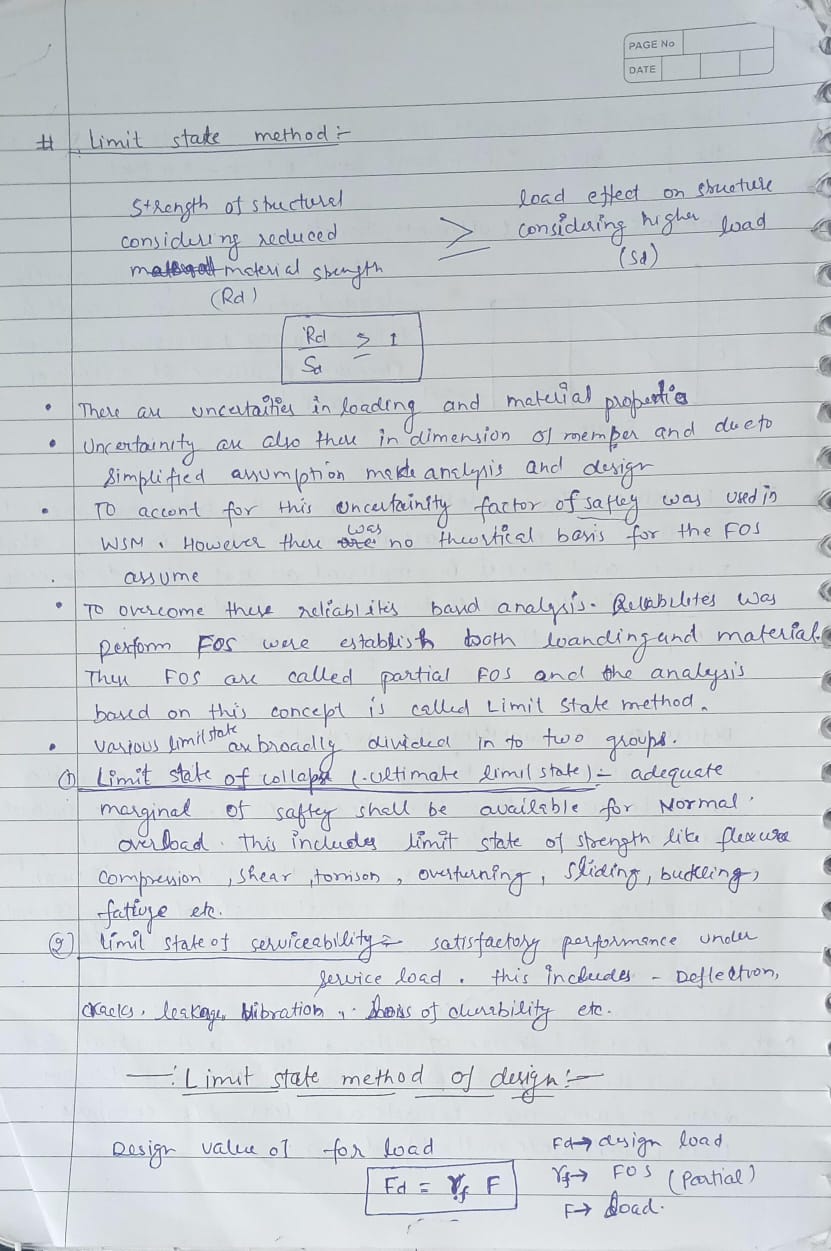 PAGE No
DATE
# Limit state method :-
Strength of structural
considering reduced
material strength
(Rd)
≥
load effect on structure
considering higher load
(Sd)
Rd/Sd ≥ 1
• There are uncertaities in loading and material properties
• Uncertainity are also there in dimension of member and due to
simplified assumption made analysis and design
• To accont for this uncertainity factor of saftey was used in
WSM. However there was no theortical basis for the FOS
assume
• To overcome these reliablities basd analysis. Reliabilites was
perform FOS were establish both loanding and material.
Then FOS are called partial FOS and the analysis
based on this concept is called Limit State method.
• various limit state are broadlly divided in to two groups.
(1) Limit state of collapse (ultimate limit state) :- adequate
marginal of saftey shall be available for Normal
overload. This includes limit state of strength like flexure
compression, shear, torrison, overturning, sliding, buckling,
fatiuge etc.
(2) Limit state of serviceability :- satisfactory performance under
service load. this includes - Deflection,
cracks, leakage, vibration, loss of durability etc.
—: Limit state method of design :—
Design value of for load
Fd = γf F
Fd → design load
γf → FOS (Partial)
F → load.